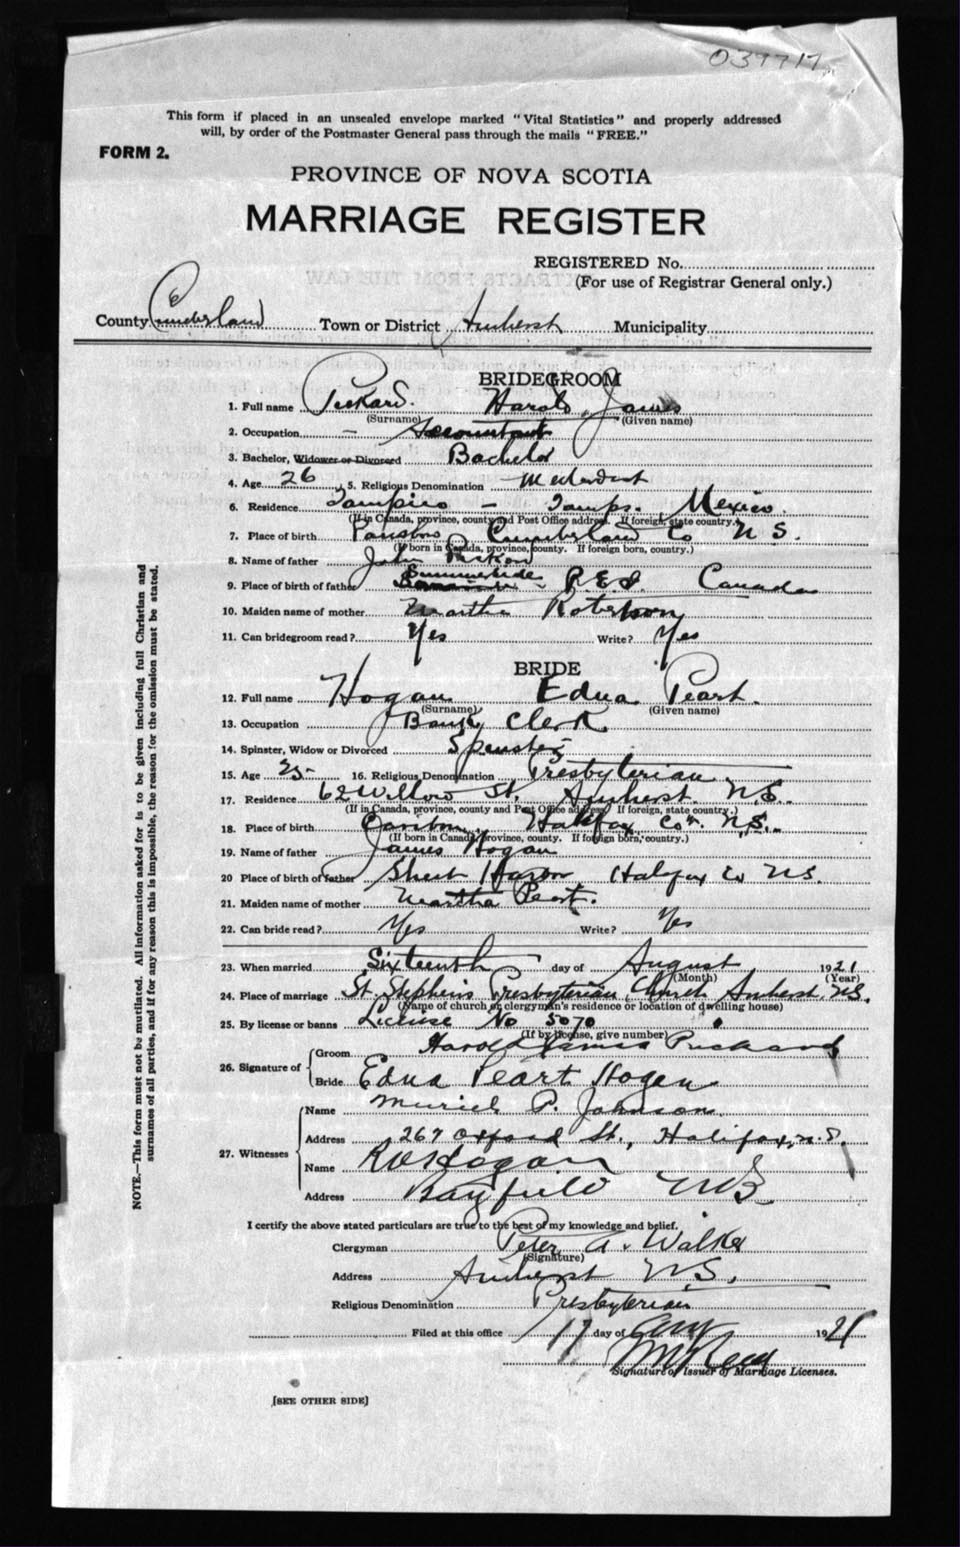 039717
This form if placed in an unsealed envelope marked "Vital Statistics" and properly addressed
will, by order of the Postmaster General pass through the mails "FREE."
FORM 2.
PROVINCE OF NOVA SCOTIA
MARRIAGE REGISTER
REGISTERED No.
(For use of Registrar General only.)
County Cumberland Town or District Amherst Municipality
BRIDEGROOM
1. Full name Pickard Harold James
(Surname) (Given name)
2. Occupation Accountant
3. Bachelor, Widower or Divorced Bachelor
4. Age 26 5. Religious Denomination Methodist
6. Residence Tampico - Tamps. Mexico.
(If in Canada, province, county and Post Office address. If foreign, state country.)
7. Place of birth Parrsboro Cumberland Co N S.
(If born in Canada, province, county. If foreign born, country.)
8. Name of father John Pickard
9. Place of birth of father Summerside - P.E.I. Canada
10. Maiden name of mother Martha Roberson
11. Can bridegroom read? Yes Write? Yes
BRIDE
12. Full name Hogan Edna Peart.
(Surname) (Given name)
13. Occupation Bank Clerk
14. Spinster, Widow or Divorced Spinster
15. Age 25 16. Religious Denomination Presbyterian
17. Residence 62 Willow St, Amherst N.S.
(If in Canada, province, county and Post Office address. If foreign, state country.)
18. Place of birth Caribou Halifax Co. N.S.
(If born in Canada, province, county. If foreign born, country.)
19. Name of father James Hogan
20 Place of birth of father Sheet Harbor Halifax Co N.S.
21. Maiden name of mother Martha Peart.
22. Can bride read? Yes Write? Yes
23. When married Sixteenth day of August 1921
(Month) (Year)
24. Place of marriage St. Stephen's Presbyterian Church Amherst, N.S.
(Name of church or clergyman's residence or location of dwelling house)
25. By license or banns License No 5070
(If by license, give number)
26. Signature of
Groom Harold James Pickard
Bride Edna Peart Hogan
27. Witnesses
Name Muriel P. Johnson
Address 267 Oxford St., Halifax, N.S.
Name Hogan
Address Bayfield N B
I certify the above stated particulars are true to the best of my knowledge and belief.
Clergyman Peter A. Walker
(Signature)
Address Amherst N.S.
Religious Denomination Presbyterian
Filed at this office 17 day of Aug 1921
Signature of Issuer of Marriage Licenses.
[SEE OTHER SIDE]
NOTE.—This form must not be mutilated. All information asked for is to be given including full Christian and
surnames of all parties, and if for any reason this is impossible, the reason for the omission must be stated.